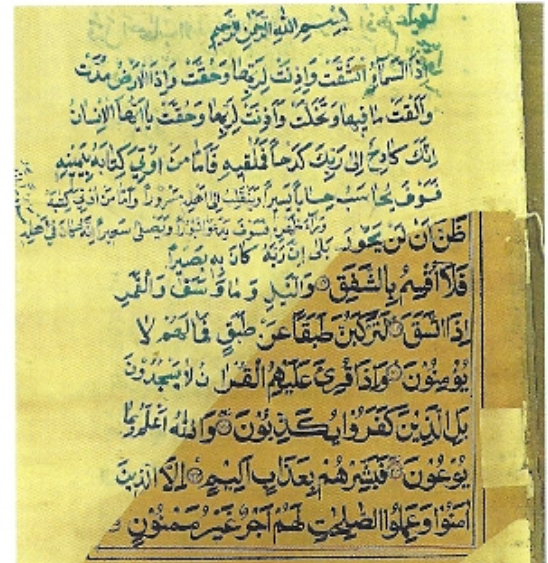 بِسْمِ اللهِ الرَّحْمٰنِ الرَّحِيمِ
اِذَا السَّمَآءُ انْشَقَّتْ وَاَذِنَتْ لِرَبِّهَا وَحُقَّتْ وَاِذَا الْاَرْضُ مُدَّتْ
وَاَلْقَتْ مَا فِيهَا وَتَخَلَّتْ وَاَذِنَتْ لِرَبِّهَا وَحُقَّتْ يَا اَيُّهَا الْاِنْسَانُ
اِنَّكَ كَادِحٌ اِلٰى رَبِّكَ كَدْحًا فَمُلٰقِيهِ فَاَمَّا مَنْ اُوتِيَ كِتَابَهُ بِيَمِينِهِ
فَسَوْفَ يُحَاسَبُ حِسَابًا يَسِيرًا وَيَنْقَلِبُ اِلٰى اَهْلِهِ مَسْرُورًا وَاَمَّا مَنْ اُوتِيَ كِتٰبَهُ
وَرَآءَ ظَهْرِهِ فَسَوْفَ يَدْعُوا ثُبُورًا وَيَصْلٰى سَعِيرًا اِنَّهُ كَانَ فِي اَهْلِهِ
ظَنَّ اَنْ لَنْ يَحُورَ بَلٰى اِنَّ رَبَّهُ كَانَ بِهِ بَصِيرًا
فَلَا اُقْسِمُ بِالشَّفَقِ وَالَّيْلِ وَمَا وَسَقَ وَالْقَمَرِ
اِذَا اتَّسَقَ لَتَرْكَبُنَّ طَبَقًا عَنْ طَبَقٍ فَمَا لَهُمْ لَا
يُؤْمِنُونَ وَاِذَا قُرِئَ عَلَيْهِمُ الْقُرْاٰنُ لَا يَسْجُدُونَ
بَلِ الَّذِينَ كَفَرُوا يُكَذِّبُونَ وَاللهُ اَعْلَمُ بِمَا
يُوعُونَ فَبَشِّرْهُمْ بِعَذَابٍ اَلِيمٍ اِلَّا الَّذِينَ
اٰمَنُوا وَعَمِلُوا الصّٰلِحٰتِ لَهُمْ اَجْرٌ غَيْرُ مَمْنُونٍ